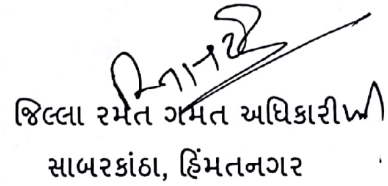 જિલ્લા રમત ગમત અધિકારીશ્રી
સાબરકાંઠા, હિંમતનગર